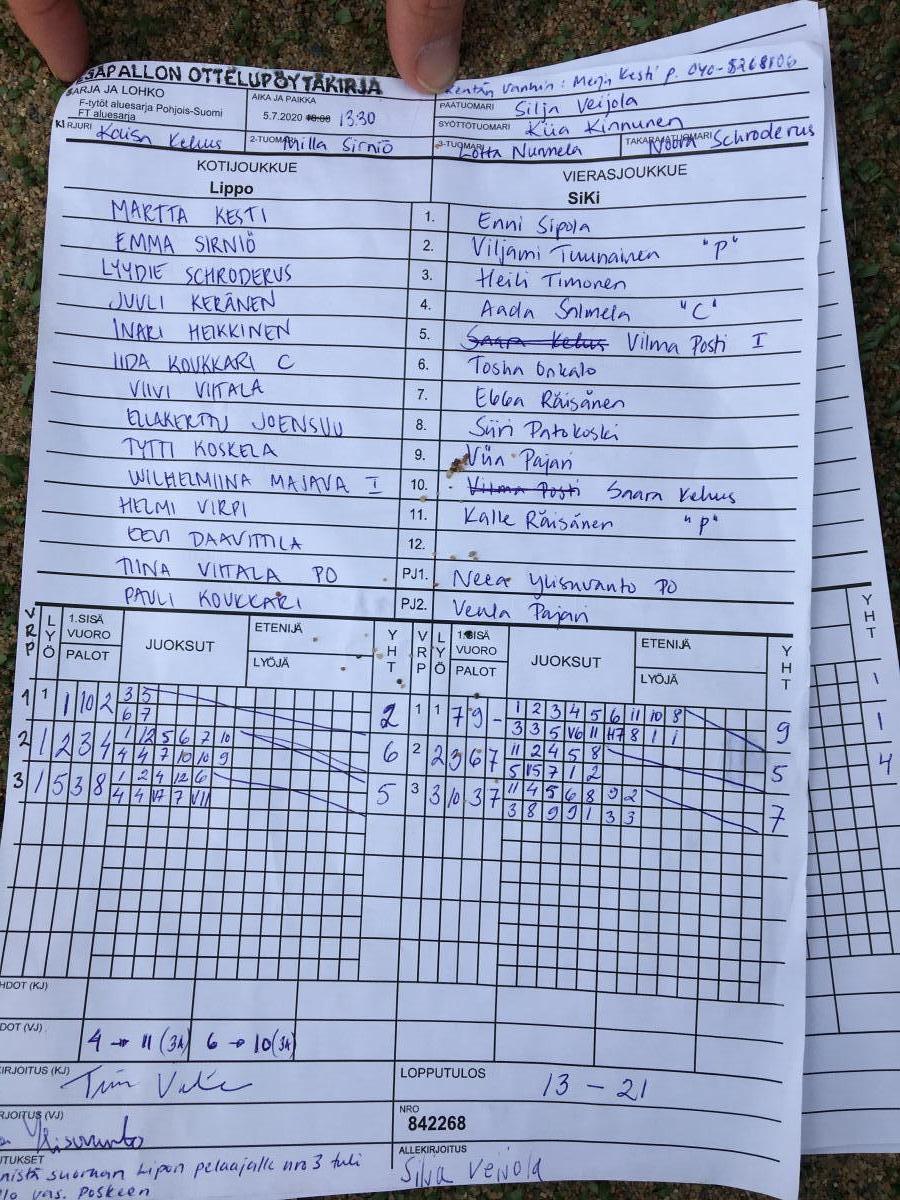 SÄPALLON OTTELUPÖYTÄKIRJA
Kentän vanhin: Merja Kesti p. 040-8268106
SARJA JA LOHKO
F-tytöt aluesarja Pohjois-Suomi
FT aluesarja
AIKA JA PAIKKA
5.7.2020 18:00 13:30
PÄÄTUOMARI Silja Veijola
SYÖTTÖTUOMARI Kiia Kinnunen
KIRJURI Kaisa Kehus 2-TUOM Milla Sirniö 3-TUOMARI Lotta Nurmela TAKARAJATUOMARI Noora Schroderus
KOTIJOUKKUE VIERASJOUKKUE
Lippo SiKi
MARTTA KESTI 1. Enni Sipola
EMMA SIRNIÖ 2. Viljami Tuunainen "P"
LYYDIE SCHRODERUS 3. Heili Timonen
JUULI KERÄNEN 4. Aada Salmela "C"
INARI HEIKKINEN 5. Saara Kehus Vilma Posti I
IIDA KOUKKARI C 6. Tosha Onkalo
VIIVI VIITALA 7. Ebba Räisänen
ELLAKERTTU JOENSUU 8. Siiri Patokoski
TYTTI KOSKELA 9. Viia Pajari
WILHELMIINA MAJAVA I 10. Vilma Posti Saara Kehus
HELMI VIRPI 11. Kalle Räisänen "P"
EEVI DAAVITTILA 12.
TIINA VIITALA PO PJ1. Neea Ylisuvanto PO
PAULI KOUKKARI PJ2. Venla Pajari
VRP LYÖ 1.SISÄ VUORO PALOT JUOKSUT ETENIJÄ LYÖJÄ YHT VRP LYÖ 1.SISÄ VUORO PALOT JUOKSUT ETENIJÄ LYÖJÄ YHT YHT
1 1 1 10 2 3 3 2 1 1 7 9 - 1 2 3 4 5 6 11 10 8 9 1
6 7 3 3 5 V6 11 H7 8 1 1
2 1 2 3 4 1 12 5 6 7 10 6 2 2 3 6 7 11 2 4 5 8 5 1
4 4 7 10 10 9 5 V5 7 1 2
3 1 5 3 8 1 2 4 12 6 5 3 3 10 3 7 11 4 5 6 8 9 2 7 4
4 4 V7 7 V11 3 8 9 9 1 3 3
HDOT (KJ)
DOT (VJ) 4 → 11 (3A) 6 → 10 (3A)
IRJOITUS (KJ) LOPPUTULOS 13 - 21
RJOITUS (VJ) Ylisuvanto NRO
842268
ITUKSET ALLEKIRJOITUS Silja Veijola
nistä suoraan Lipon pelaajalle nro 3 tuli
llo vas. poskeen